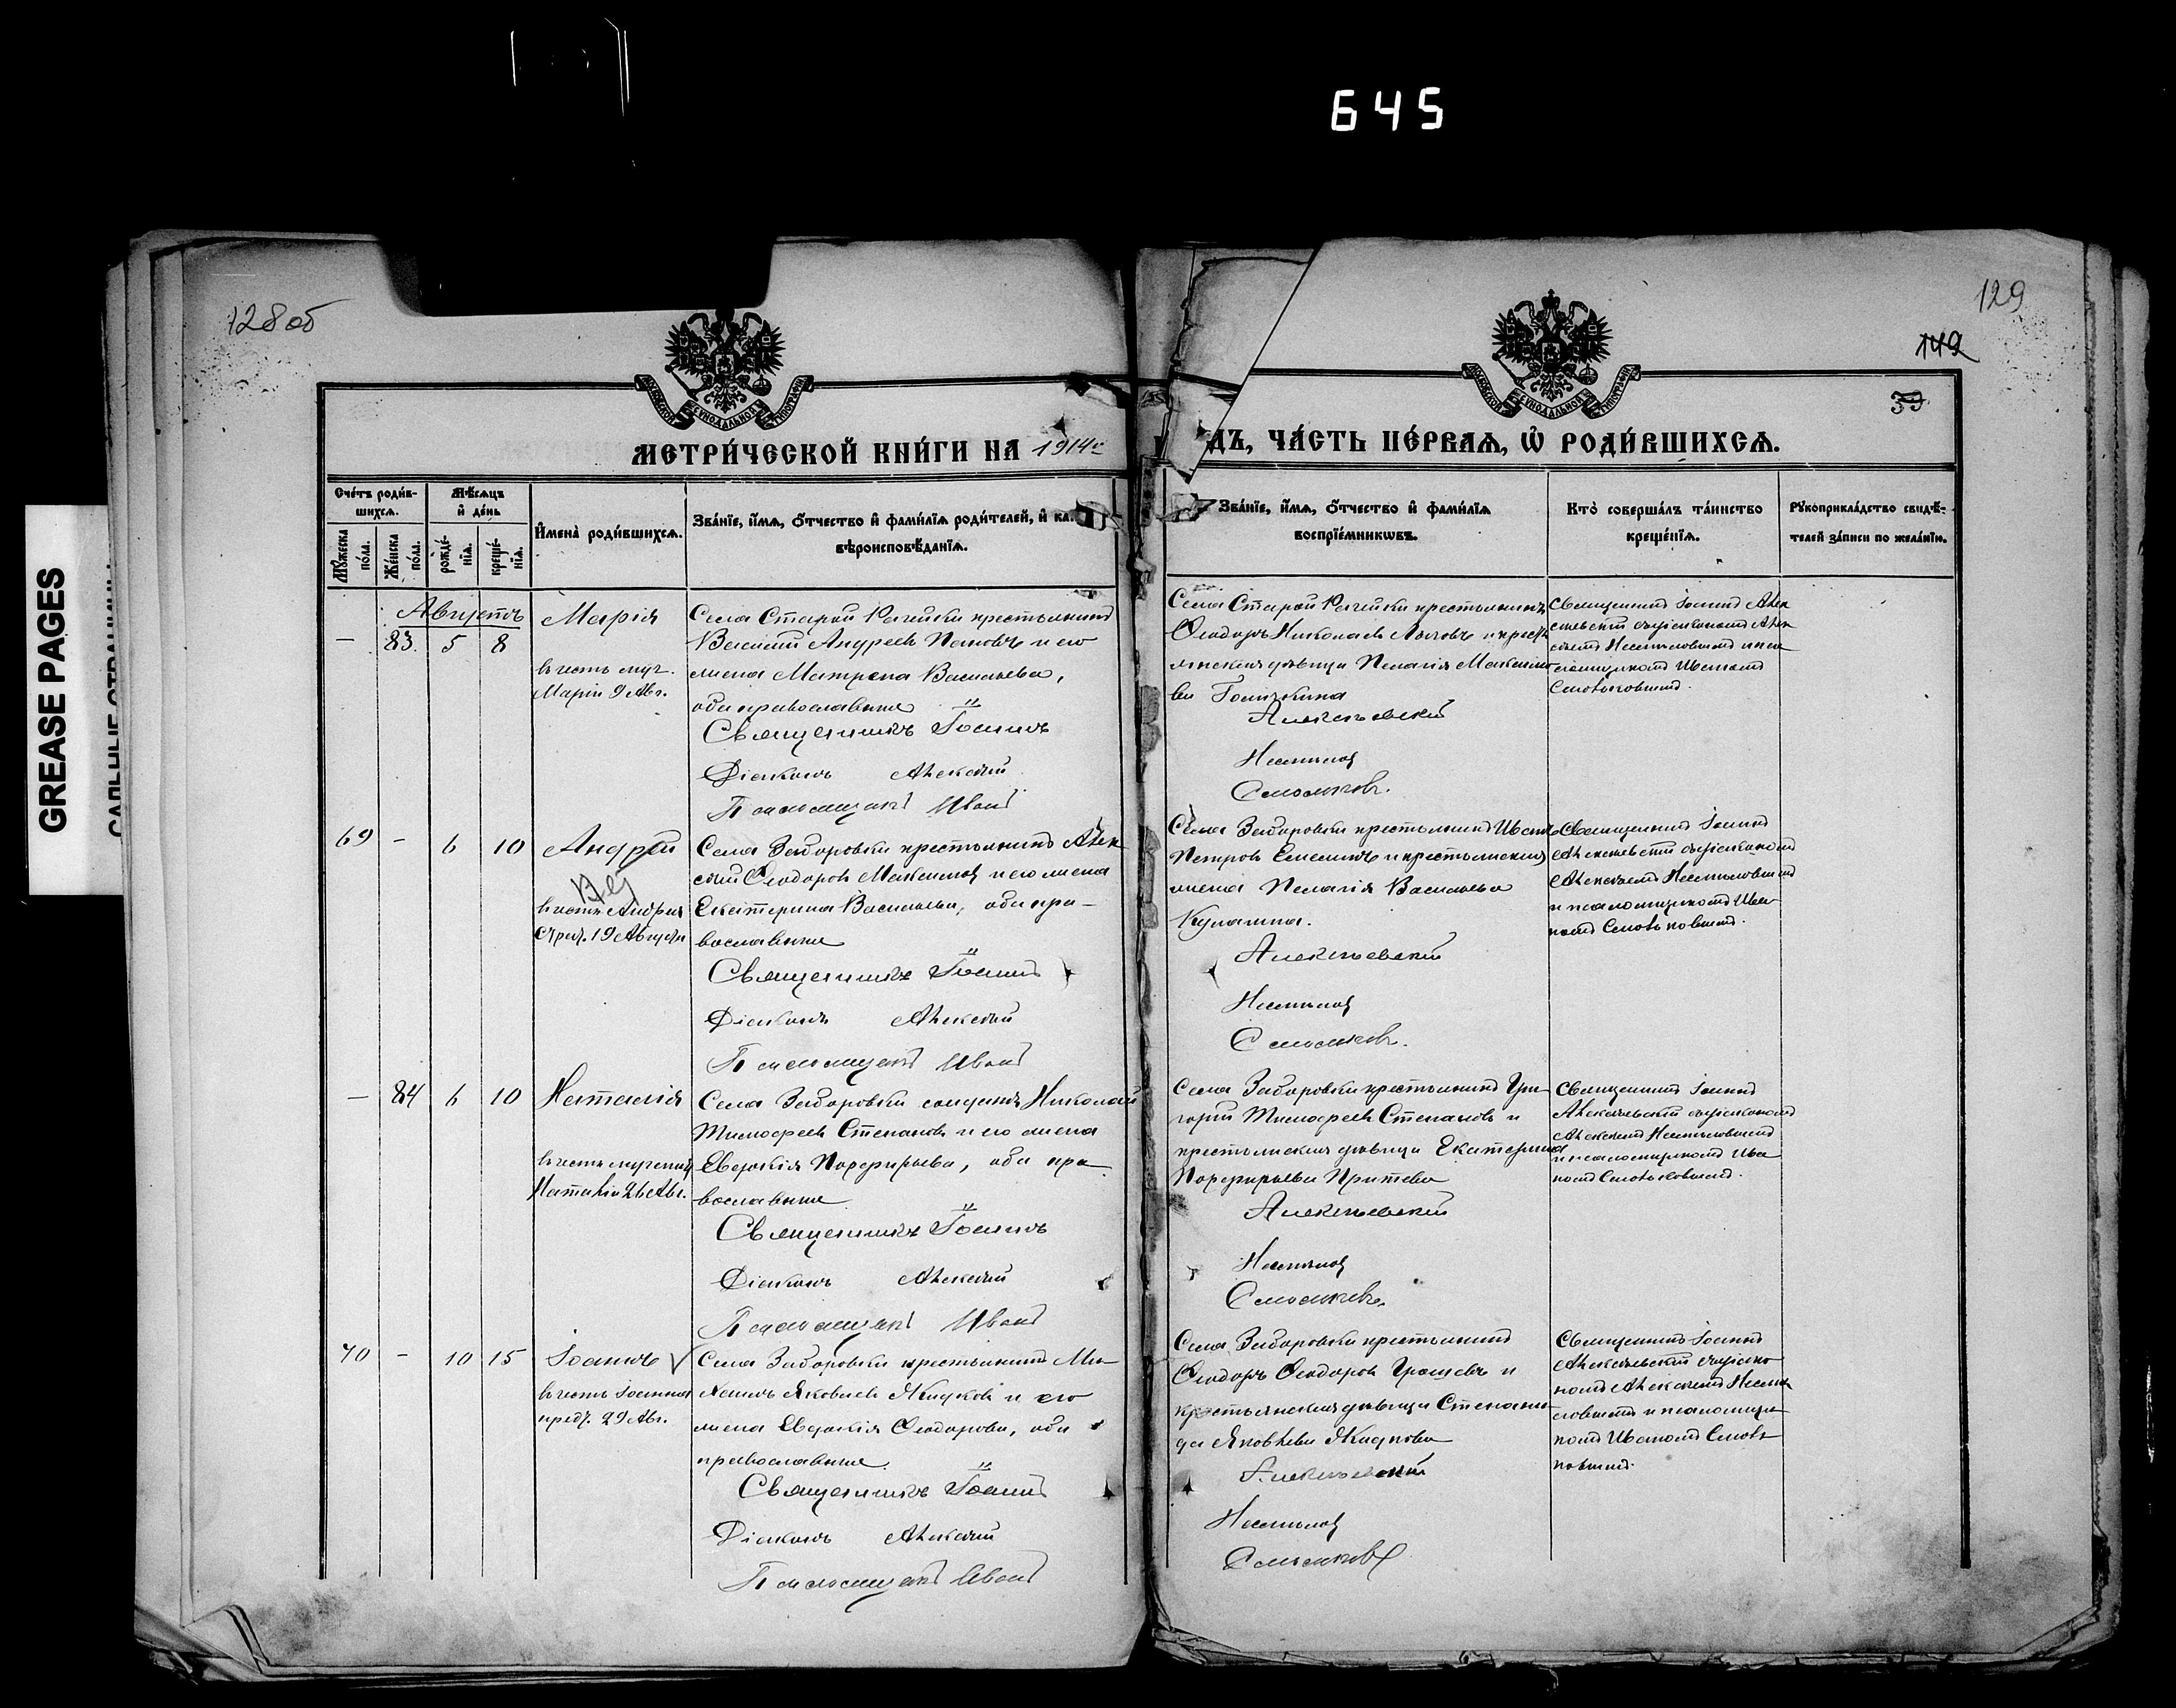 645
GREASE PAGES
128об
129
149
МОСКОВСКОЙ СѴНОДАЛЬНОЙ ТИПОГРАФІИ
МОСКОВСКОЙ СѴНОДАЛЬНОЙ ТИПОГРАФІИ
МЕТРИ́ЧЕСКОЙ КНИ́ГИ НА 1914 г
ДЪ, ЧА́СТЬ ПЕ́РВАѦ, Ѡ҆ РОДИ́ВШИХСѦ.
Сче́тъ роди́в-
шихсѧ.
Мꙋ́жеска по́ла.
Же́нска по́ла.
Мѣ́сѧцъ
и҆ де́нь
рожде́-
нїѧ.
креще́-
нїѧ.
И҆мена̀ роди́вшихсѧ.
Зва́нїе, и҆́мѧ, ѻ҆́тчество и҆ фами́лїѧ роди́телей, и҆ ка
вѣроисповѣ́данїѧ.
Зва́нїе, и҆́мѧ, ѻ҆́тчество и҆ фами́лїѧ
воспрїе́мникѡвъ.
Кто̀ соверша́лъ та́инство
креще́нїѧ.
Рꙋкоприкла́дство свидѣ́-
телей за́писи по жела́нїю.
Августъ
— 83. 5 8
Марія
въ честь муч.
Маріи 9 Авг.
Села Старой Рачейки крестьянинъ
Василій Андреевъ Пановъ и его
жена Матрона Васильева,
оба православные
Священникъ Іоаннъ
Діаконъ Алексѣй
Псаломщикъ Иванъ
Села Старой Рачейки крестьянинъ
Ѳеодоръ Николаевъ и кресть
янская дѣвица Пелагія Максимо
ва
Алексѣевскій
Несмѣловъ
Смольковъ.
Священникъ Іоаннъ Алек
сѣевскій съ діакономъ Алек
сѣемъ Несмѣловымъ и пса
ломщикомъ Иваномъ
Смольковымъ.
69 - 6 10
Андрей
въ честь Андрея
Страт. 19 Августа
Села Заборовки крестьянинъ Алек
сѣй Ѳеодоровъ Максимовъ и его жена
Екатерина Васильева, оба пра-
вославные
Священникъ Іоаннъ
Діаконъ Алексѣй
Псаломщикъ Иванъ
Села Заборовки крестьянинъ Иванъ
Петровъ и крестьянская
жена Пелагія Васильева
Алексѣевскій
Несмѣловъ
Смольковъ.
Священникъ Іоаннъ
Алексѣевскій съ діакономъ
Алексѣемъ Несмѣловымъ
и псаломщикомъ Ива-
номъ Смольковымъ.
— 84 6 10
Наталія
въ честь мученицы
Наталіи 26 Авг.
Села Заборовки солдатъ Николай
Тимофеевъ Степановъ и его жена
Евдокія Порфирьева, оба пра-
вославные
Священникъ Іоаннъ
Діаконъ Алексѣй
Псаломщикъ Иванъ
Села Заборовки крестьянинъ Гри-
горій Тимофеевъ Степановъ и
крестьянская дѣвица Екатерина
Порфирьева
Алексѣевскій
Несмѣловъ
Смольковъ.
Священникъ Іоаннъ
Алексѣевскій съ діакономъ
Алексѣемъ Несмѣловымъ
и псаломщикомъ Ива
номъ Смольковымъ.
70 - 10 15
Іоаннъ
въ честь Іоанна
предт. 29 Авг.
Села Заборовки крестьянинъ Ми-
хаилъ Яковлевъ Жидковъ и его
жена Евдокія Ѳеодорова, оба
православные.
Священникъ Іоаннъ
Діаконъ Алексѣй
Псаломщикъ Иванъ
Села Заборовки крестьянинъ
Ѳеодоръ Ѳеодоровъ и
крестьянская дѣвица Степани-
да Яковлева Жидкова
Алексѣевскій
Несмѣловъ
Смольковъ
Священникъ Іоаннъ
Алексѣевскій съ діако
номъ Алексѣемъ Несмѣ
ловымъ и псаломщи
комъ Иваномъ Смоль
ковымъ.